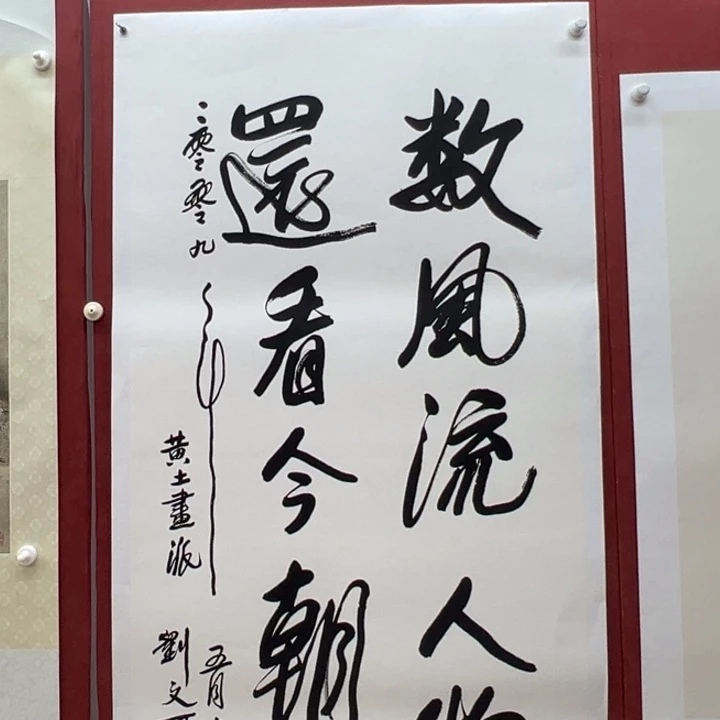 数風流人物
還看今朝
二零零九年五月
黄土畫派
劉文西